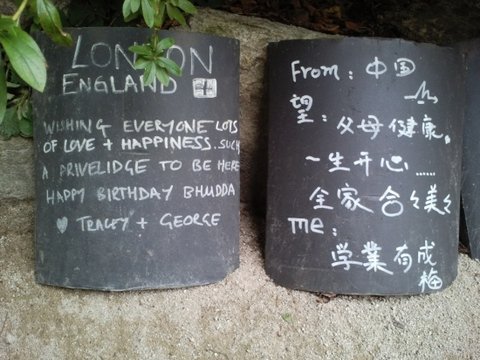 LONDON
ENGLAND
WISHING EVERYONE LOTS
OF LOVE + HAPPINESS. SUCH
A PRIVELIDGE TO BE HERE
HAPPY BIRTHDAY BHUDDA
♥ TRACEY + GEORGE
From: 中国
望:父母健康。
一生开心……
全家合々美々
me:
学業有成
梅